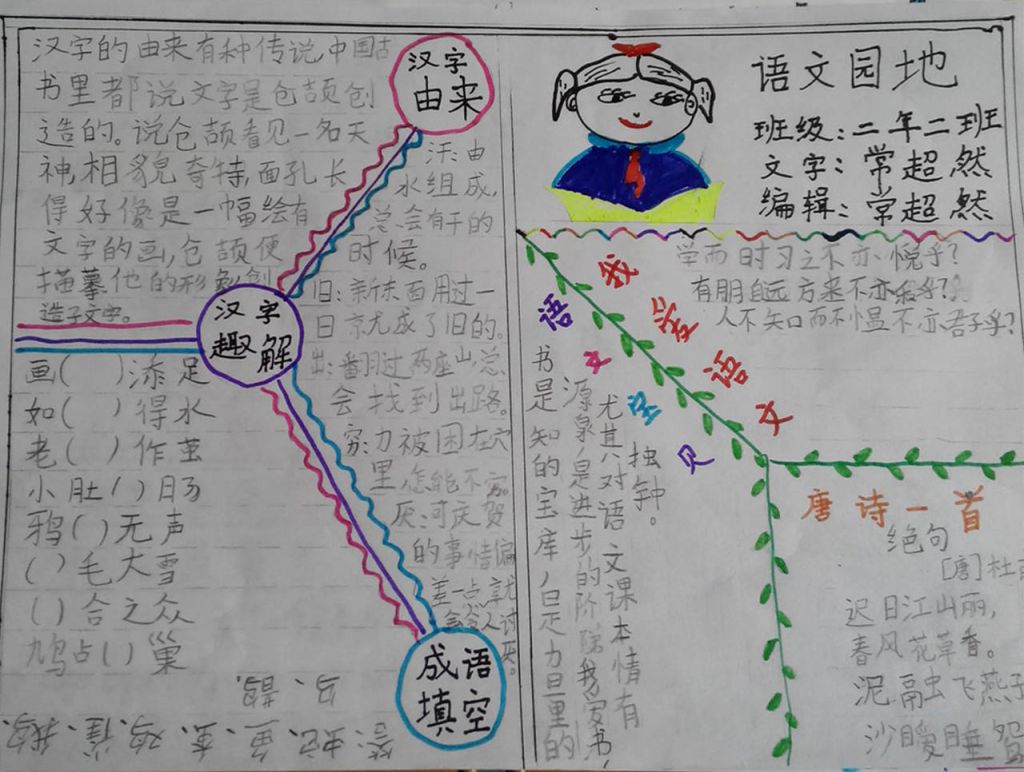 汉字的由来有种传说,中国古
书里都说文字是仓颉创
造的。说仓颉看见一名天
神,相貌奇特,面孔长
得好像是一幅绘有
文字的画,仓颉便
描摹他的形象创
造了文字。
汉字
由来
汗:由
水组成,
总会有干的
时候。
旧:新东西用过一
日就成了旧的。
出:翻过两座山总
会找到出路。
穷:力被困在穴
里怎能不穷。
厌:可庆贺
的事情偏
差一点就
会令人讨
厌。
汉字
趣解
画( )添足
如( )得水
老( )作茧
小肚( )肠
鸦( )无声
( )毛大雪
( )合之众
鸠占( )巢
成语
填空
答:蛇、鱼、蚕、鸡、雀、鹅、
乌、鹊.
语文园地
班级:二年二班
文字:常超然
编辑:常超然
学而时习之不亦悦乎?
有朋自远方来不亦乐乎?
人不知而不愠不亦君子乎?
我爱语文
语文宝贝
书是知的宝库,是力量的
源泉,是进步的阶梯我爱书,
尤其对语文课本情有
独钟。
唐诗一首
绝句
[唐]杜甫
迟日江山丽,
春风花草香。
泥融飞燕子
沙暖睡鸳